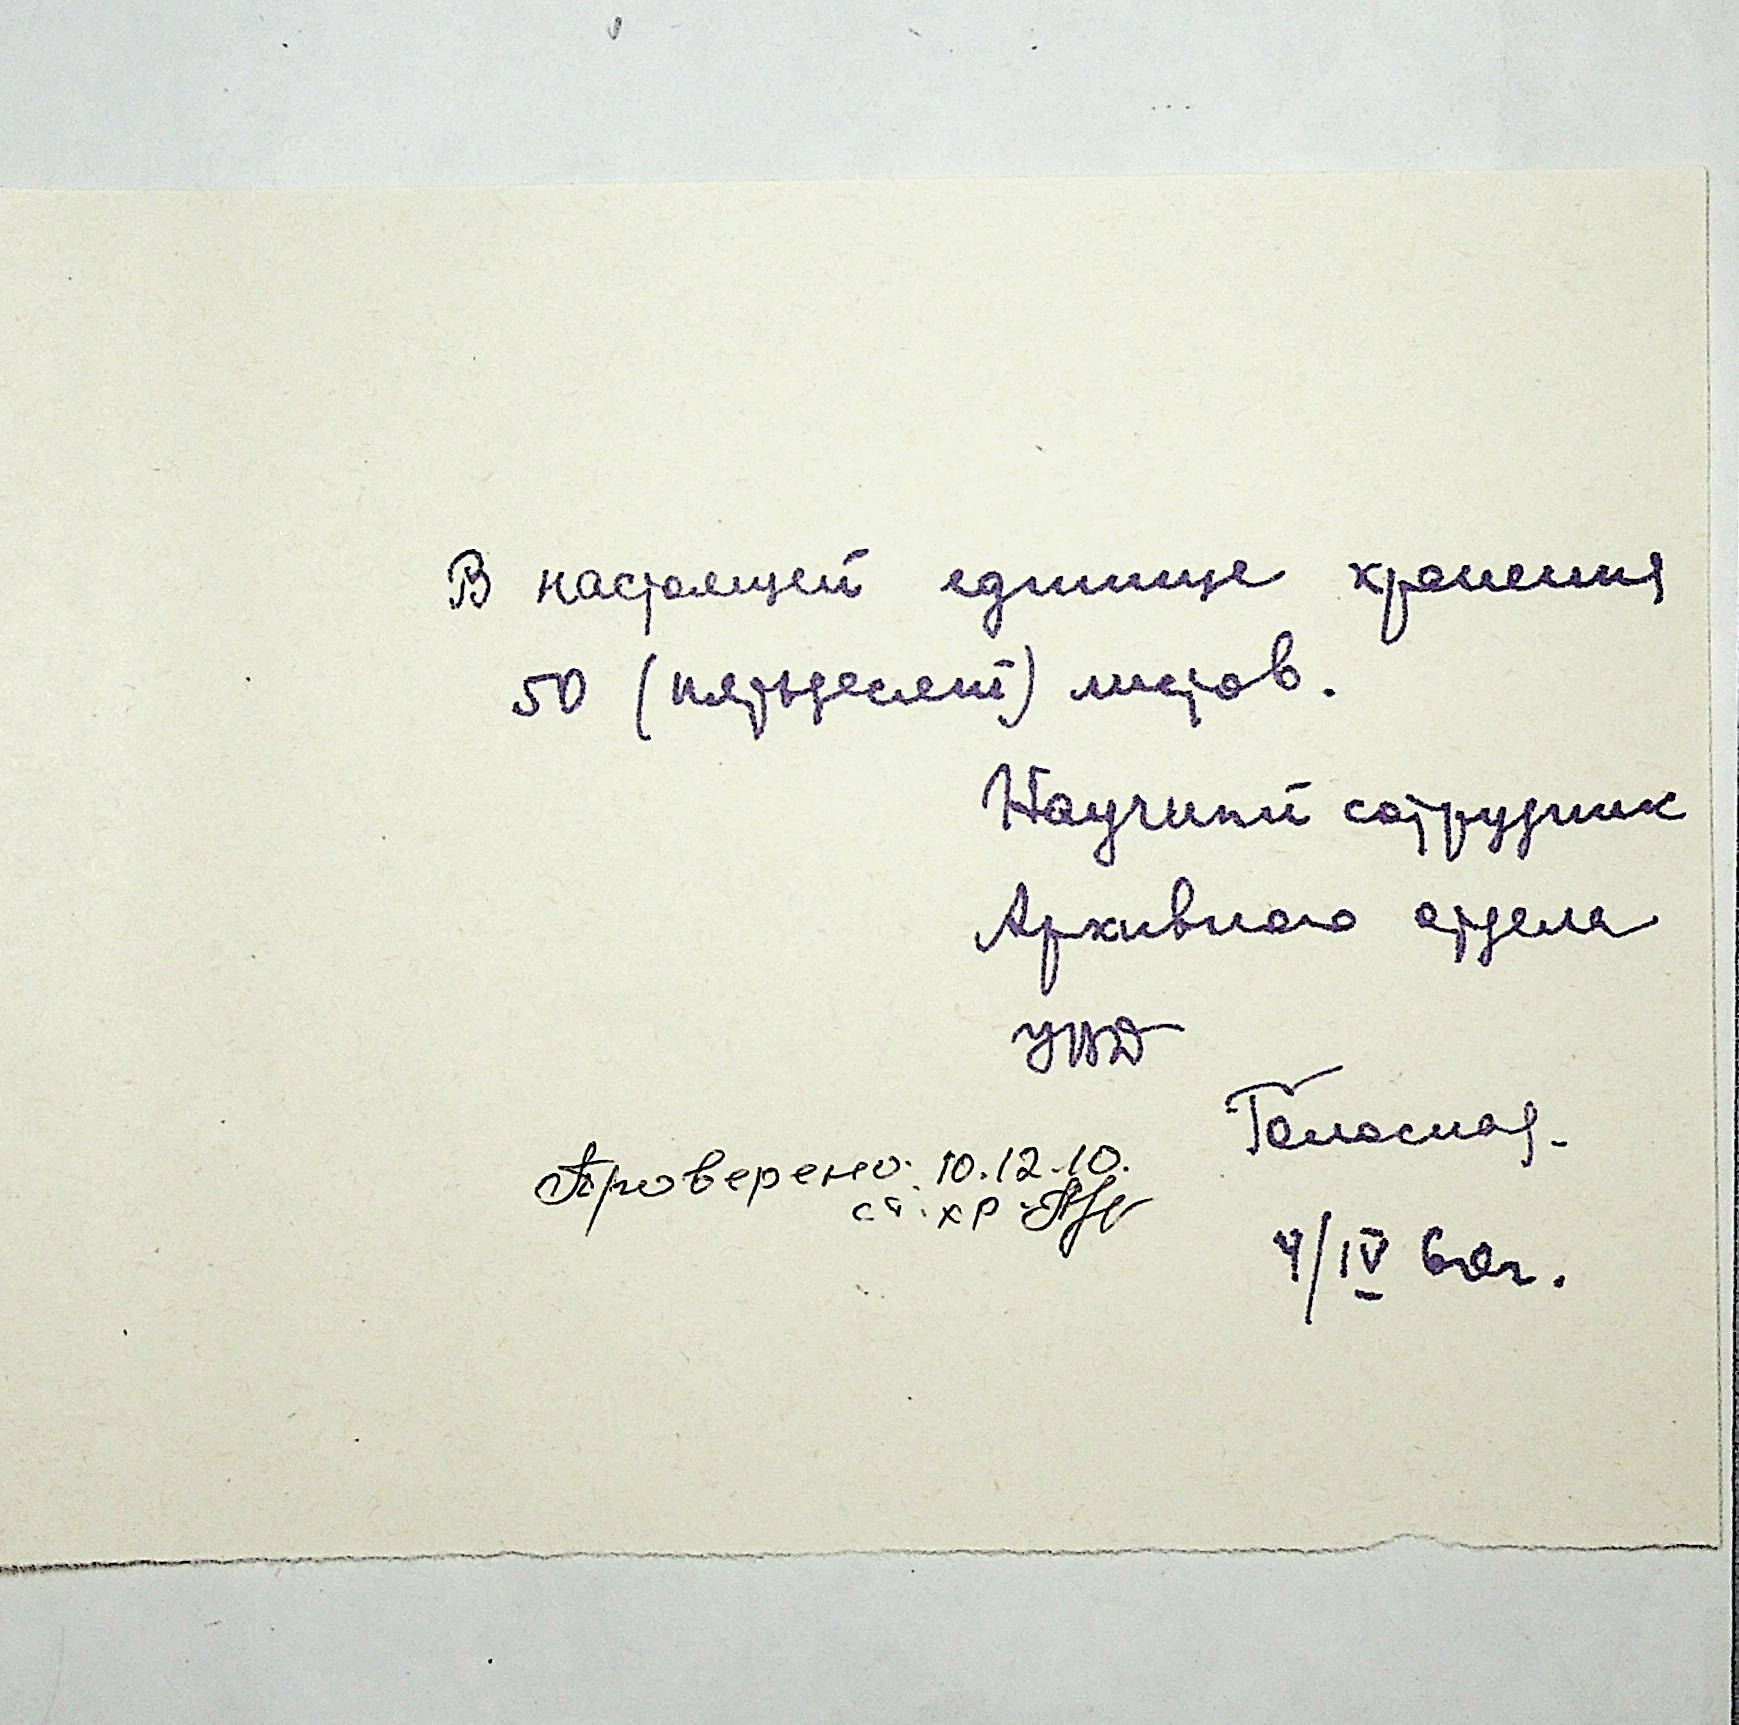 В настоящей единице хранения
50 (пятьдесят) листов.
Научный сотрудник
Архивного отдела
УВД
Проверено: 10.12.10.
ст. хр
4/IV 60г.